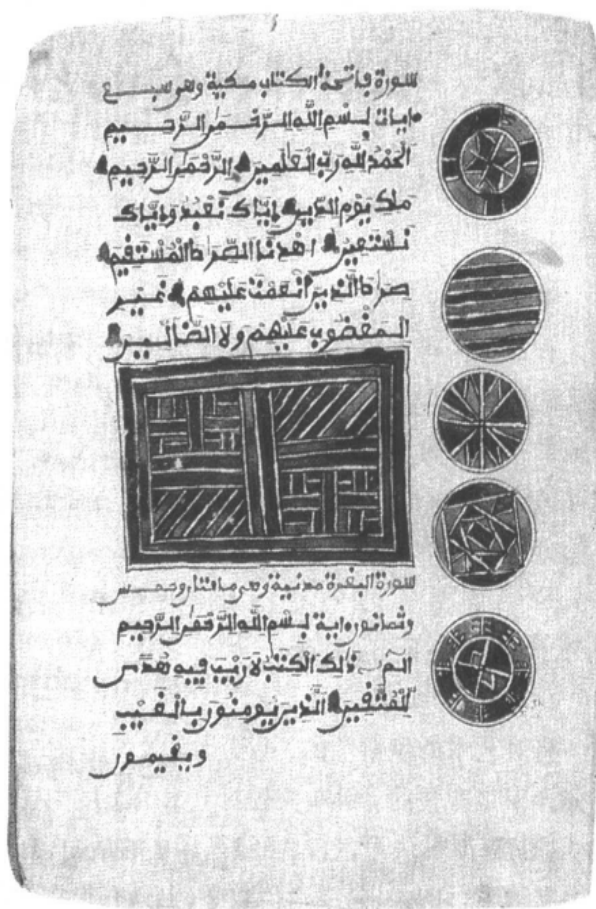 سورة فاتحة الكتاب مكية وهي سبع
ءايات بِسْمِ اللَّهِ الرَّحْمَٰنِ الرَّحِيمِ
الْحَمْدُ لِلَّهِ رَبِّ الْعَٰلَمِينَ الرَّحْمَٰنِ الرَّحِيمِ
مَلِكِ يَوْمِ الدِّينِ إِيَّاكَ نَعْبُدُ وَإِيَّاكَ
نَسْتَعِينُ اهْدِنَا الصِّرَاطَ الْمُسْتَقِيمَ
صِرَاطَ الَّذِينَ أَنْعَمْتَ عَلَيْهِمْ غَيْرِ
الْمَغْضُوبِ عَلَيْهِمْ وَلَا الضَّالِّينَ
سورة البقرة مدنية وهي مائتان وخمس
وثمانون ءاية بِسْمِ اللَّهِ الرَّحْمَٰنِ الرَّحِيمِ
الم ذَٰلِكَ الْكِتَٰبُ لَا رَيْبَ فِيهِ هُدًى
لِلْمُتَّقِينَ الَّذِينَ يُومِنُونَ بِالْغَيْبِ
وَيُقِيمُونَ